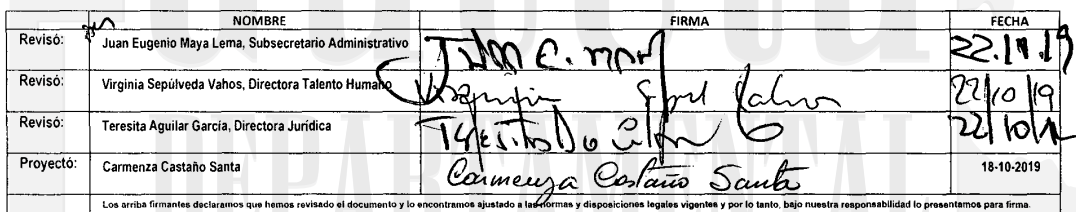 NOMBRE FIRMA FECHA
Revisó: Juan Eugenio Maya Lema, Subsecretario Administrativo 22.11.19
Revisó: Virginia Sepúlveda Vahos, Directora Talento Humano Virginia 22/10/19
Revisó: Teresita Aguilar García, Directora Jurídica 22/10/
Proyectó: Carmenza Castaño Santa Carmenza Castaño Santa 18-10-2019
Los arriba firmantes declaramos que hemos revisado el documento y lo encontramos ajustado a las normas y disposiciones legales vigentes y por lo tanto, bajo nuestra responsabilidad lo presentamos para firma.